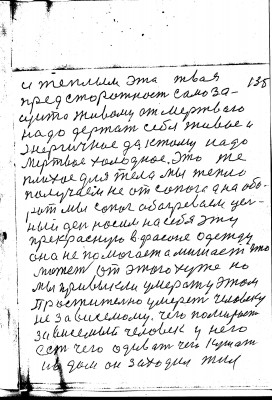 и теплым эта твоя
135
предсторожност само за-
щита живому от мертваго
надо держат себя живое и
энергичное да к тому надо
мертвое холодное, это не
плохое для тела мы тепло
получаем не от сопога а на обо-
рот мы сопог обогреваем цел-
ный ден носим на себя эту
прекрасную в фасоне одежду
она не помогает а мишает что
может от этого хуже но
мы привыкли умерат у этом
простително умерет человеку
не зависемому. чего помирает
зависемый человек у него
ест чего одеват чего кушат
и в дом он заходил жил